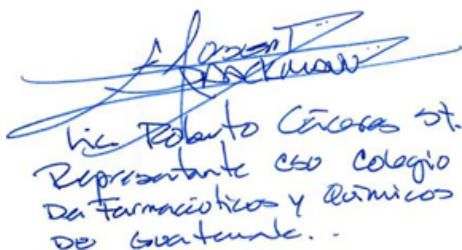 Lic. Roberto Cáceres St.
Representante CSO Colegio
De Farmacéuticos y Químicos
De Guatemala..